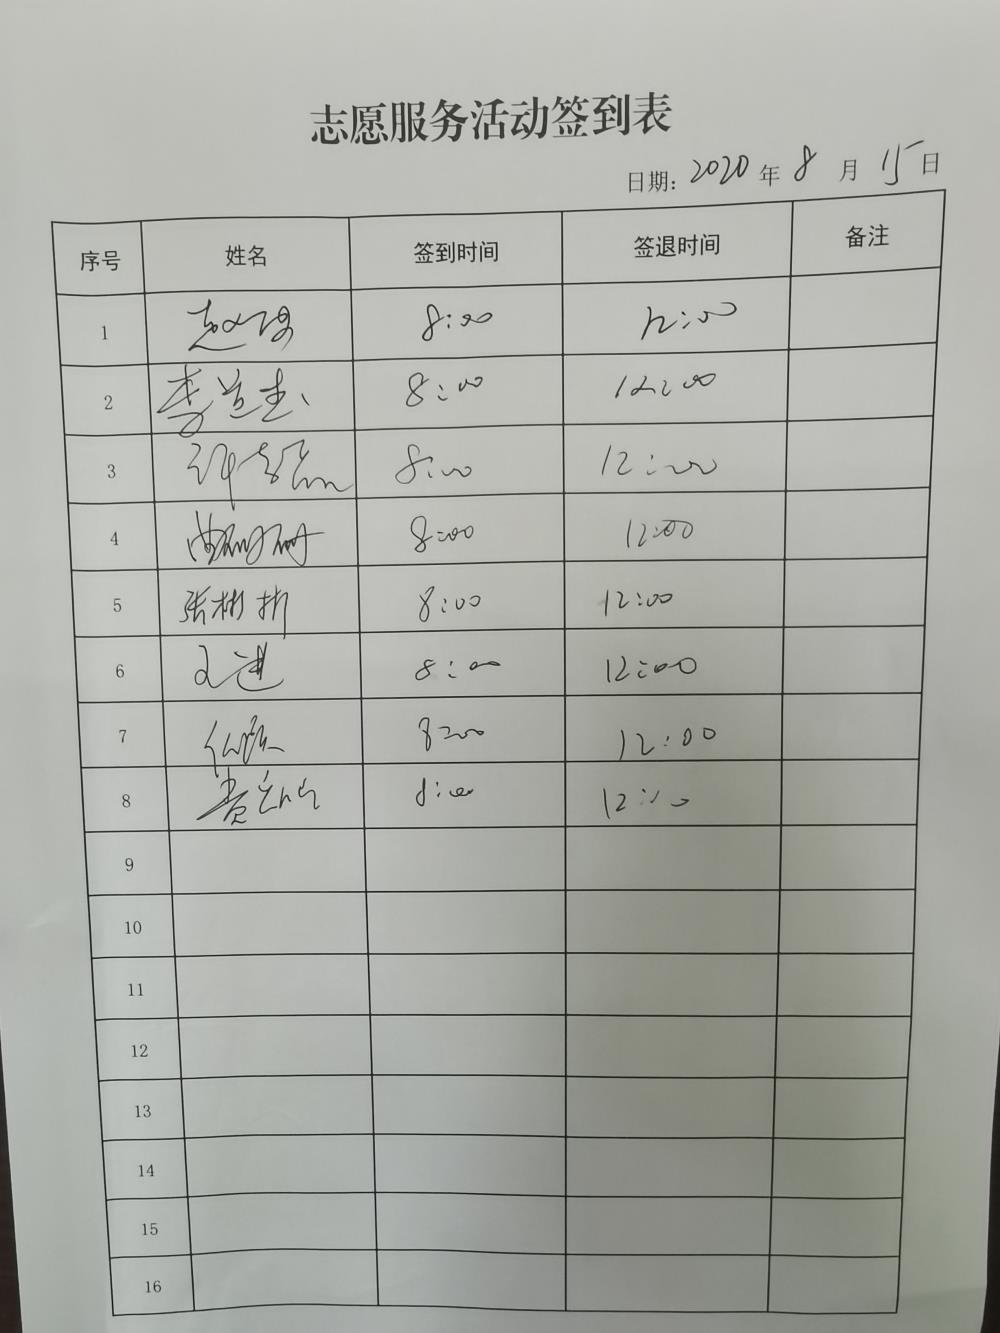 志愿服务活动签到表
日期: 2020 年 8 月 15 日
序号 姓名 签到时间 签退时间 备注
1 8:00 12:00
2 李 8:00 12:00
3 8:00 12:00
4 8:00 12:00
5 张彬彬 8:00 12:00
6 文进 8:00 12:00
7 8:00 12:00
8 黄 8:00 12:00
9
10
11
12
13
14
15
16